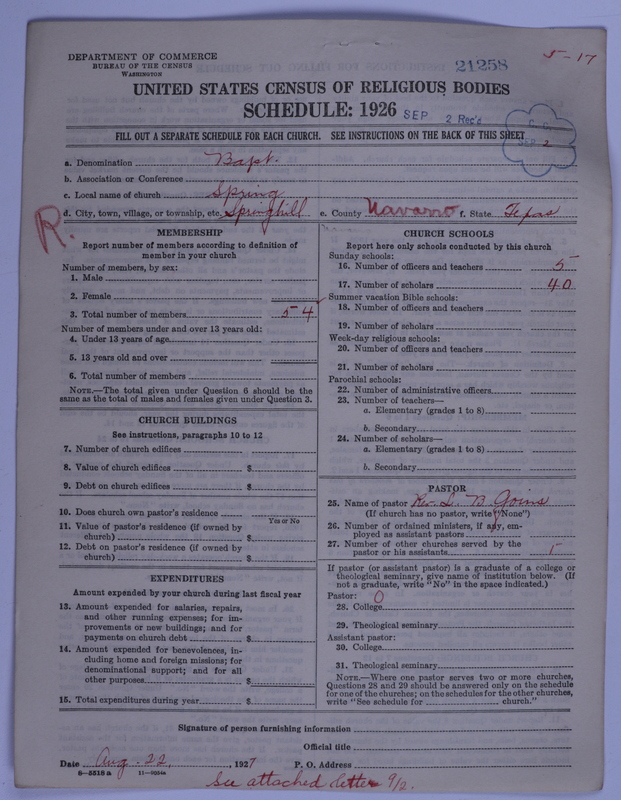 DEPARTMENT OF COMMERCE
BUREAU OF THE CENSUS
WASHINGTON
21258
5-17
UNITED STATES CENSUS OF RELIGIOUS BODIES
SCHEDULE: 1926
SEP 2 Rec'd
FILL OUT A SEPARATE SCHEDULE FOR EACH CHURCH. SEE INSTRUCTIONS ON THE BACK OF THIS SHEET
SEP 2
a. Denomination Bapt.
b. Association or Conference
c. Local name of church Spring
d. City, town, village, or township, etc. Springhill e. County Navarro f. State Texas
R.
MEMBERSHIP
Report number of members according to definition of
member in your church
Number of members, by sex:
1. Male
2. Female
3. Total number of members 54
Number of members under and over 13 years old:
4. Under 13 years of age
5. 13 years old and over
6. Total number of members
NOTE.—The total given under Question 6 should be
same as the total of males and females given under Question 3.
CHURCH BUILDINGS
See instructions, paragraphs 10 to 12
7. Number of church edifices
8. Value of church edifices $
9. Debt on church edifices $
10. Does church own pastor's residence
Yes or No
11. Value of pastor's residence (if owned by
church) $
12. Debt on pastor's residence (if owned by
church) $
EXPENDITURES
Amount expended by your church during last fiscal year
13. Amount expended for salaries, repairs,
and other running expenses; for im-
provements or new buildings; and for
payments on church debt $
14. Amount expended for benevolences, in-
cluding home and foreign missions; for
denominational support; and for all
other purposes $
15. Total expenditures during year $
CHURCH SCHOOLS
Report here only schools conducted by this church
Sunday schools:
16. Number of officers and teachers 5
17. Number of scholars 40
Summer vacation Bible schools:
18. Number of officers and teachers
19. Number of scholars
Week-day religious schools:
20. Number of officers and teachers
21. Number of scholars
Parochial schools:
22. Number of administrative officers
23. Number of teachers—
a. Elementary (grades 1 to 8)
b. Secondary
24. Number of scholars—
a. Elementary (grades 1 to 8)
b. Secondary
PASTOR
25. Name of pastor Rev. L. B. Goins
(If church has no pastor, write "None")
26. Number of ordained ministers, if any, em-
ployed as assistant pastors
27. Number of other churches served by the
pastor or his assistants 1
If pastor (or assistant pastor) is a graduate of a college or
theological seminary, give name of institution below. (If
not a graduate, write "No" in the space indicated.)
Pastor: 0
28. College
29. Theological seminary
Assistant pastor:
30. College
31. Theological seminary
NOTE.—Where one pastor serves two or more churches,
Questions 28 and 29 should be answered only on the schedule
for one of the churches; on the schedules for the other churches,
write "See schedule for church."
Signature of person furnishing information
Official title
Date Aug. 22, 1927 P. O. Address
8-5518 a 11-9054a
See attached letter 9/2.